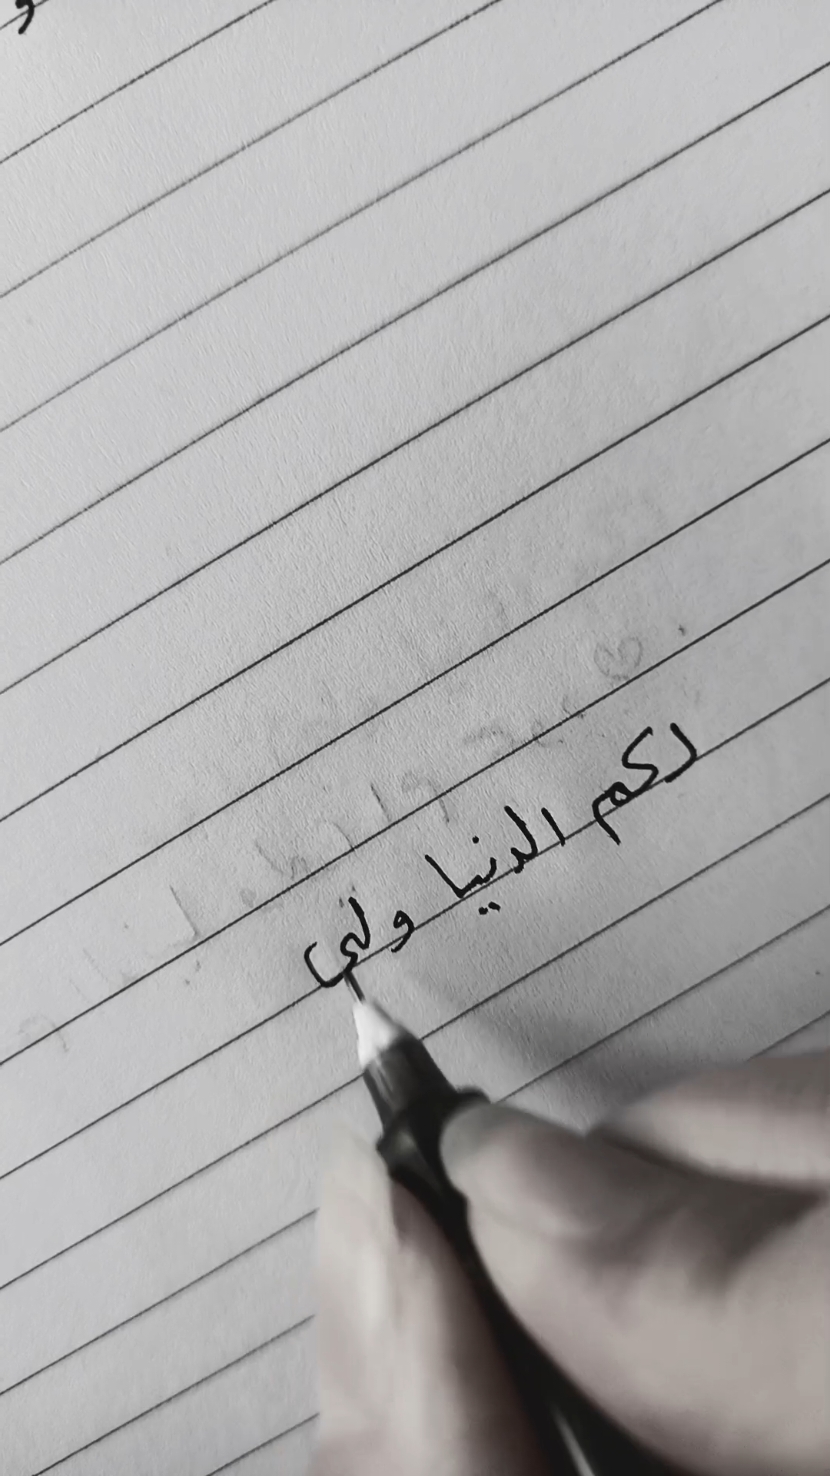 لكم الدنيا ولي